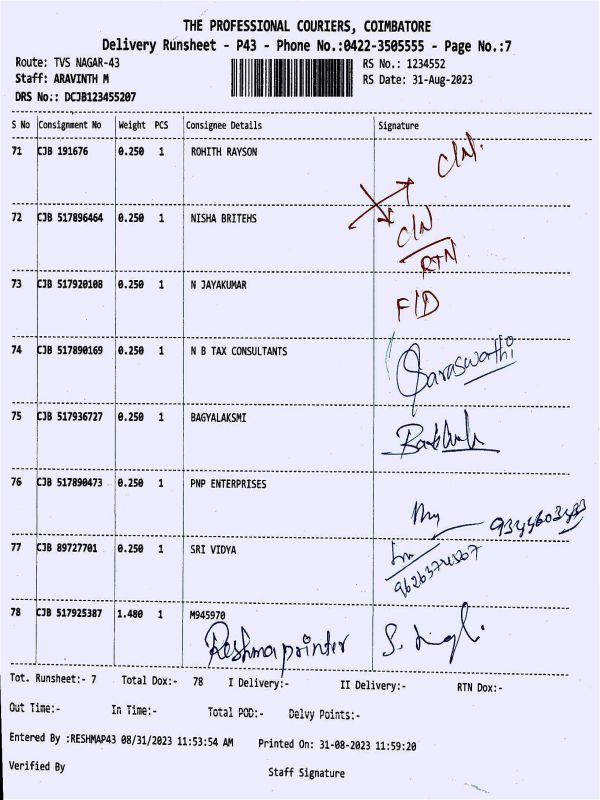 THE PROFESSIONAL COURIERS, COIMBATORE
Delivery Runsheet - P43 - Phone No.:0422-3505555 - Page No.:7
Route: TVS NAGAR-43 RS No.: 1234552
Staff: ARAVINTH M RS Date: 31-Aug-2023
DRS No.: DCJB123455207
S No Consignment No Weight PCS Consignee Details Signature
71 CJB 191676 0.250 1 ROHITH RAYSON C/N.
72 CJB 517896464 0.250 1 NISHA BRITEHS C/N
RTN
73 CJB 517920108 0.250 1 N JAYAKUMAR F/D
74 CJB 517890169 0.250 1 N B TAX CONSULTANTS Saraswathi
75 CJB 517936727 0.250 1 BAGYALAKSMI
76 CJB 517890473 0.250 1 PNP ENTERPRISES
77 CJB 89727701 0.250 1 SRI VIDYA
78 CJB 517925387 1.480 1 M945970
Reshma printer
Tot. Runsheet:- 7 Total Dox:- 78 I Delivery:- II Delivery:- RTN Dox:-
Out Time:- In Time:- Total POD:- Delvy Points:-
Entered By :RESHMAP43 08/31/2023 11:53:54 AM Printed On: 31-08-2023 11:59:20
Verified By Staff Signature